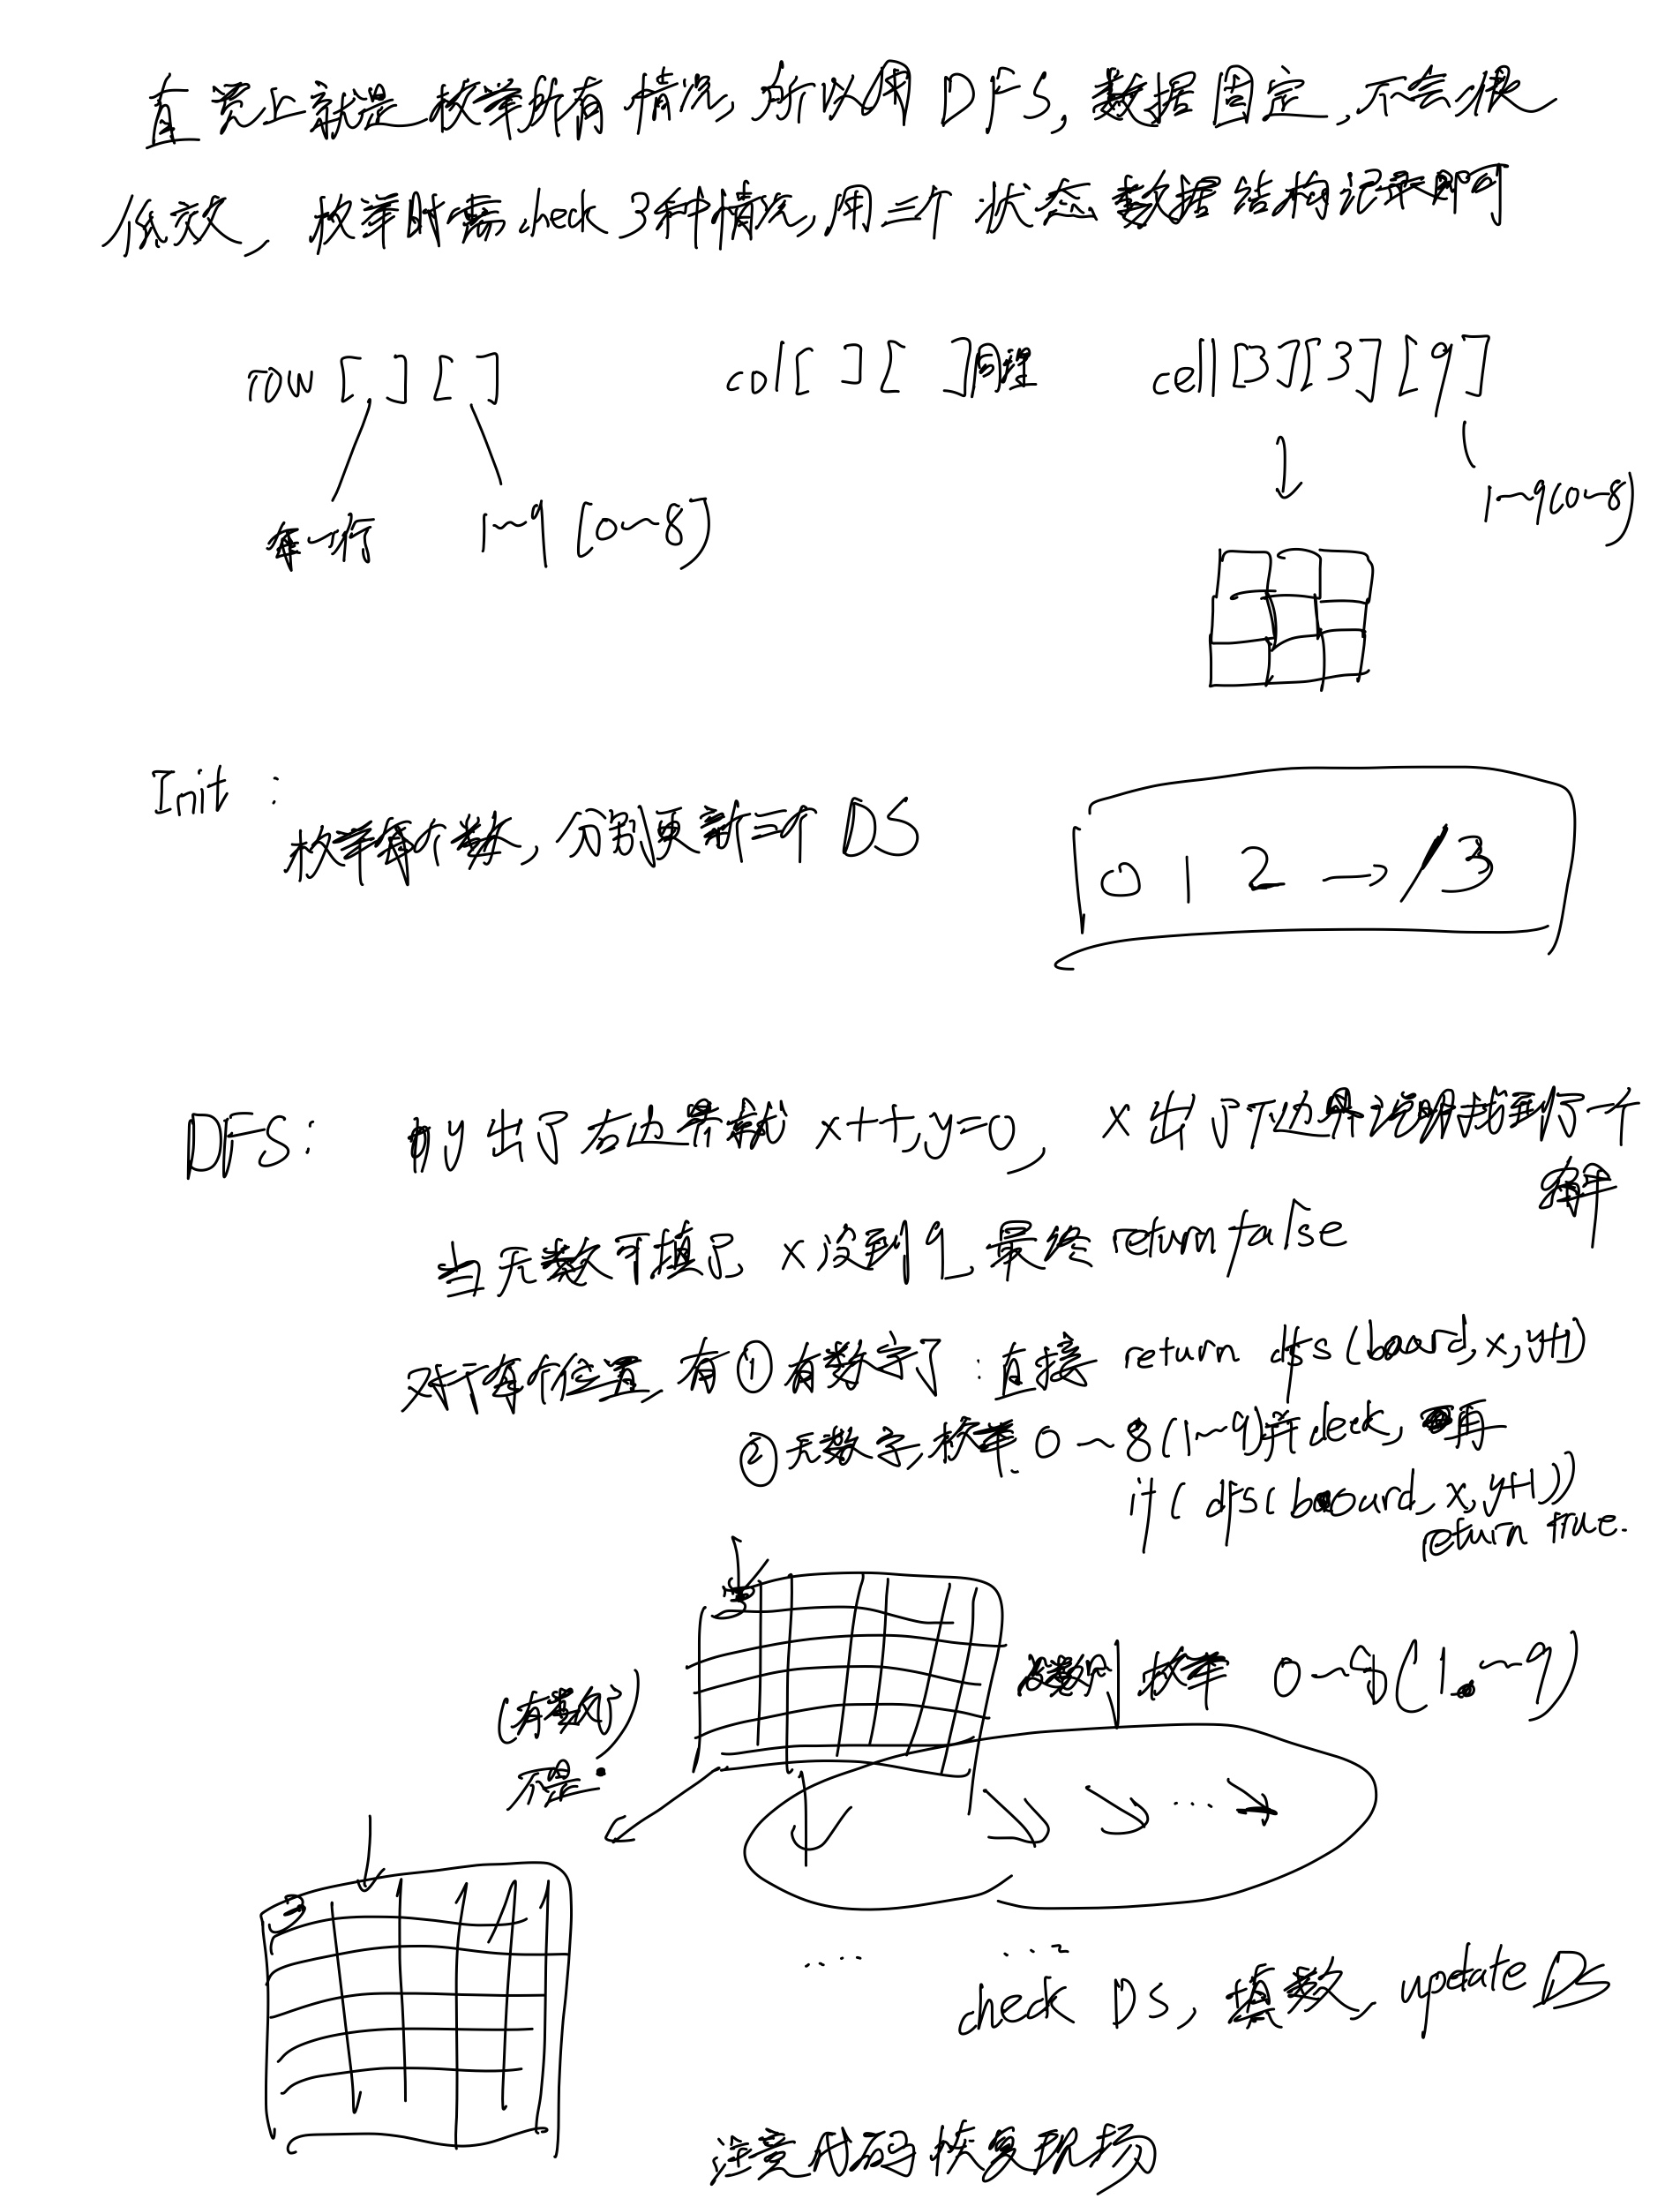 直觉上就是枚举所有情况,所以用DFS,数据固定,不会很
低效,枚举时需check 3种情况,用三个状态数据结构记录即可
row[ ][ ] col[ ][ ]同理 cell[3][3][9]
每一行 1~9(0~8) 1~9(0~8)
Init:
枚举每个数,分别更新三个DS
0 1 2 → /3
DFS: 当y出了右边界就x++,y=0, x出了下边界说明找到了一个
解
当无数可填了,x没到9,最终return false
对于每个位置,有①有数字了:直接return dfs(board,x,y+1)
②无数字,枚举0~8(1~9)并check,再
if(dfs(board,x,y+1))
return true.
3
没数的 枚举 0~8(1~9)
(有数了)
不是.
...
3
.... ....
check DS,填数,update DS
注意代码恢复现场